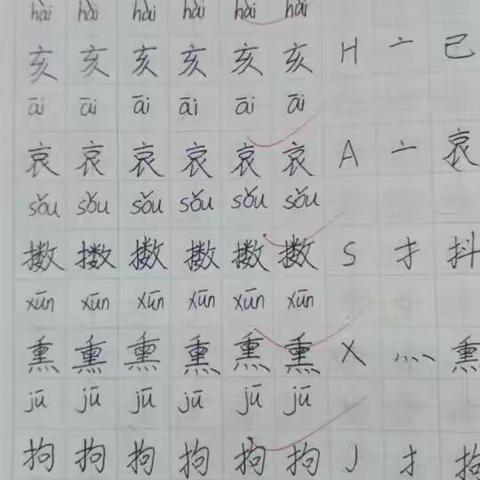 hài hài hài hài hài hài
亥 亥 亥 亥 亥 亥 H 亠 己
āi āi āi āi āi āi
哀 哀 哀 哀 哀 哀 A 亠 哀
sǒu sǒu sǒu sǒu sǒu sǒu
擞 擞 擞 擞 擞 擞 S 扌 抖
xūn xūn xūn xūn xūn xūn
熏 熏 熏 熏 熏 熏 X 灬 熏
jū jū jū jū jū jū
拘 拘 拘 拘 拘 拘 J 扌 拘